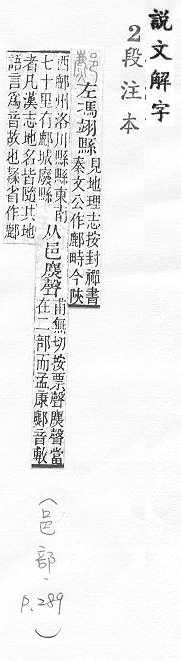 說文解字
2 段注本
左馮翊縣
見地理志按封禪書
秦文公作鄜畤今陝
西鄜州洛川縣縣東南
七十里有鄜城廢縣
从邑麃聲
甫無切按票聲麃聲當
在二部而孟康鄜音敷
者凡漢志地名皆隨其地
語言爲音故也隸省作鄜
(邑部.P.289)